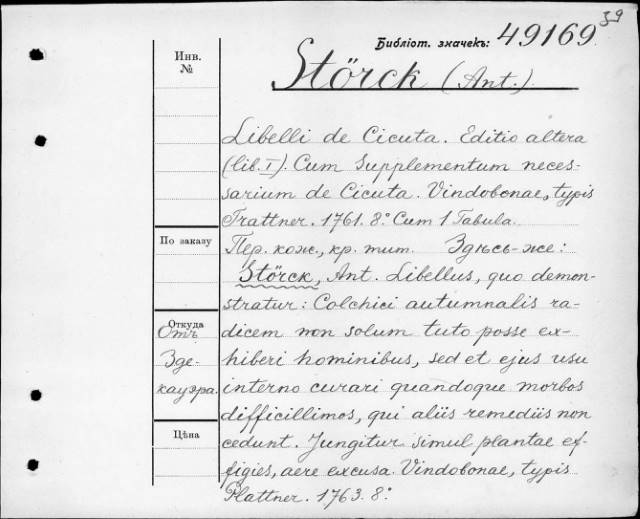 39
Библіот. значекъ: 49169.
Инв.
№
Störck (Ant.).
Libelli de Cicuta. Editio altera
(lib. I). Cum Supplementum neces-
sarium de Cicuta. Vindobonae, typis
Trattner. 1761. 8º. Cum 1 Tabula.
По заказу
Пер. кож., кр. тит. Здѣсь-же:
Störck, Ant. Libellus, quo demon-
stratur: Colchici autumnalis ra-
Откуда
Отъ
Зде-
кауэра.
dicem non solum tuto posse ex-
hiberi hominibus, sed et ejus usu
interno curari quandoque morbos
difficillimos, qui aliis remediis non
Цѣна
cedunt. Jungitur simul plantae ef-
figies, aere excusa. Vindobonae, typis
Plattner. 1763. 8º.